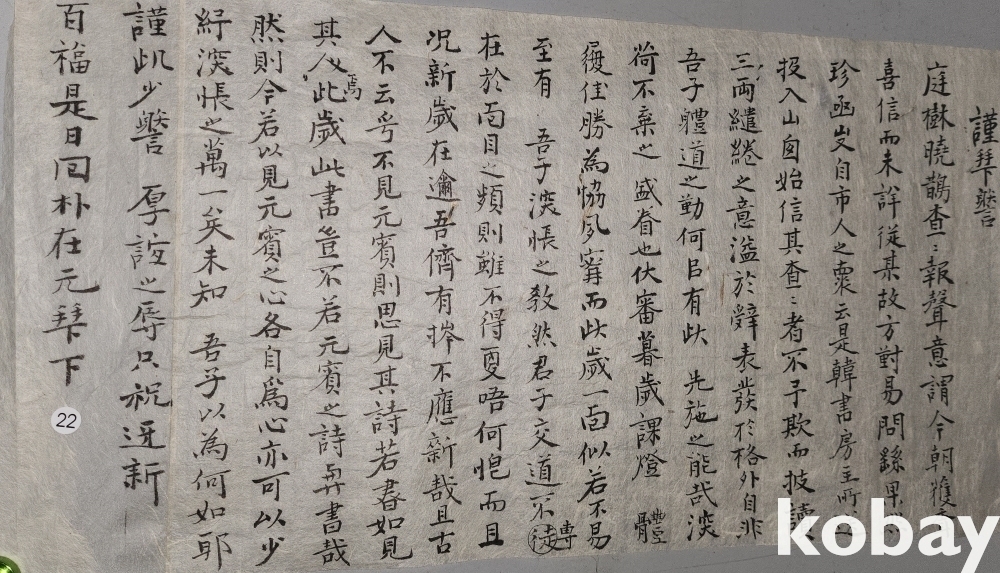 謹拜謦
庭樹曉鵲查〻報聲意謂今朝獲
喜信而未詳從某故方對易問繇果
珍函忽自市人之來云是韓書房主所
投入山囪始信其查〻者不予欺而披讀
三両繾綣之意溢於辭表發於格外自非
吾子體道之勤何㠯有此 先施之能哉深
荷不棄之 盛眷也伏審暮歲課燈 體
履佳勝為協夙寗而此歲一面似若不易
至有 吾子深悵之教然君子交道不專
在於面目之頻則雖不得更唔何悒而且
况新歲在邇吾儕有挵不應新哉且古
人不云乎不見元賓則思見其詩若書如見
其人焉此歲此書豈不若元賓之詩與書哉
然則令若以見元賓之心各自爲心亦可以少
紓深悵之萬一矣未知 吾子以為何如耶
謹此少謦 厚之辱只祝迓新
百福是日回朴在元拜下
22
kobay